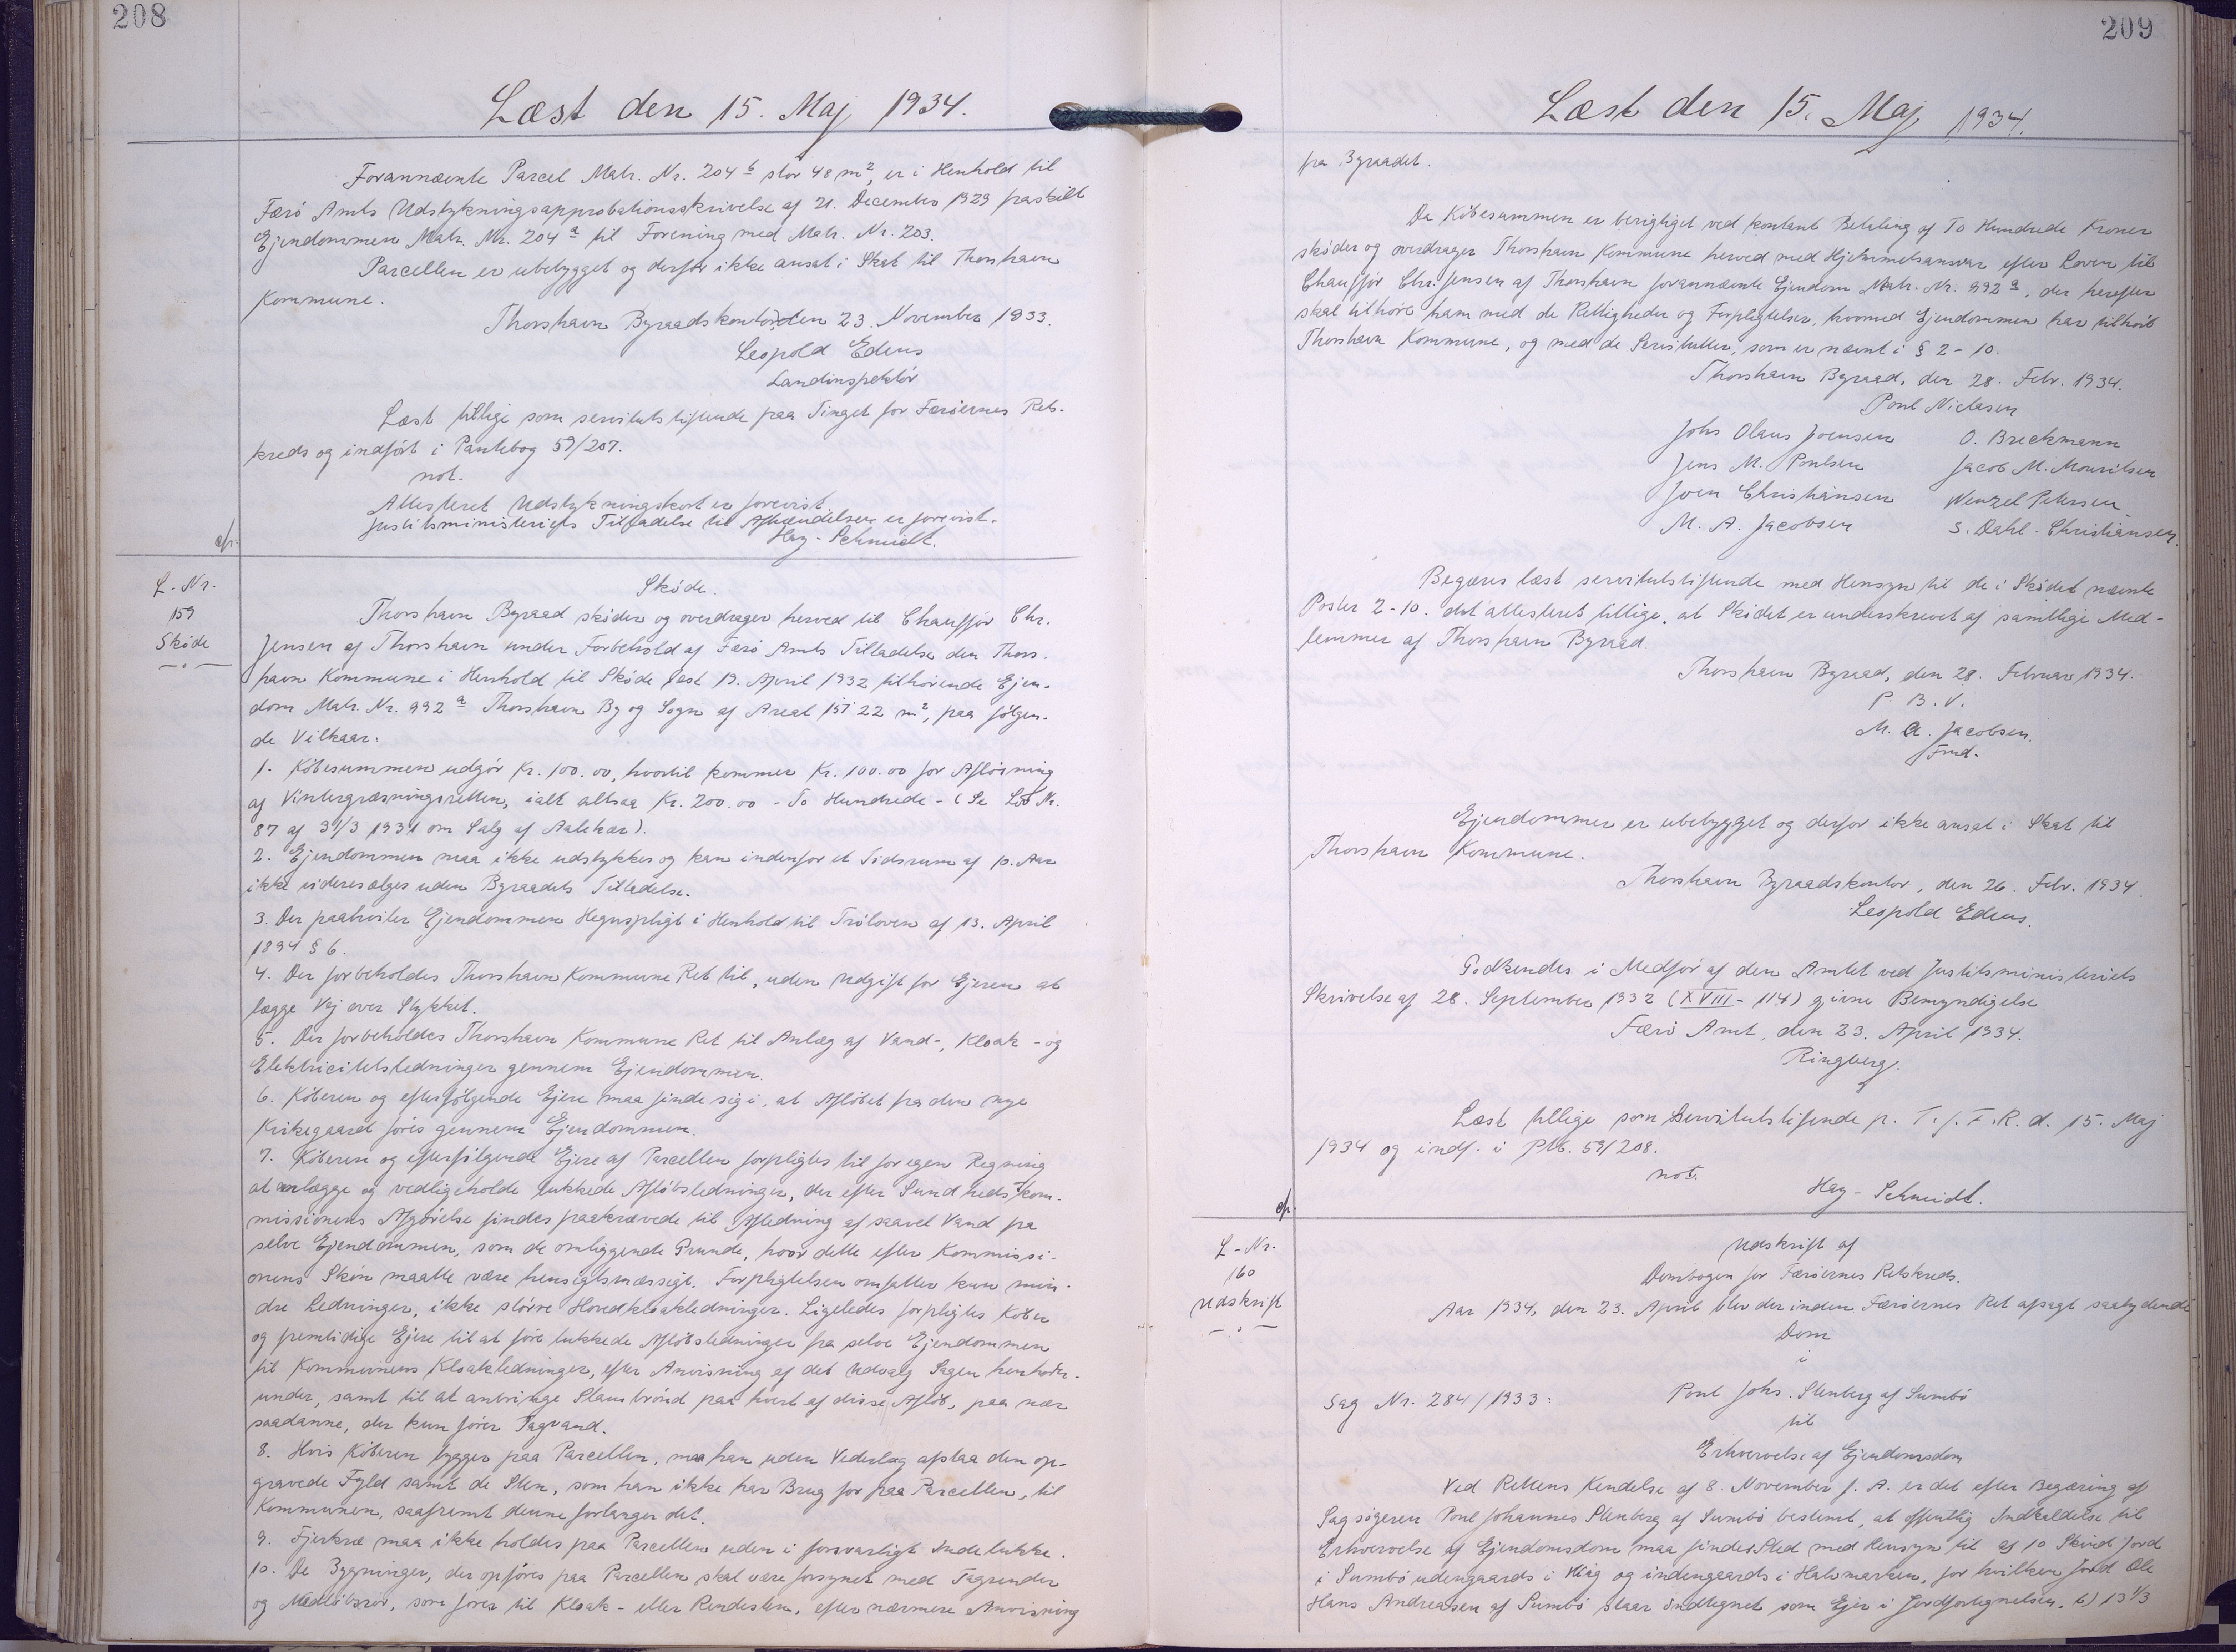 208
Læst den 15. Maj 1934.
Forannævnte Parcel Matr. Nr. 204 b stor 48 m², er i Henhold til
Færö Amts Udstykningsapprobationsskrivelse af 21. December 1929 fraskilt
Ejendommen Matr. Nr. 204 a til Forening med Matr. Nr. 203.
Parcellen er ubebygget og derfor ikke ansat i Skat til Thorshavn
Kommune.
Thorshavn Byraadskontor, den 23. November 1933.
Leopold Edens
Landinspektör
Læst tillige som servitutstiftende paa Tinget for Færöernes Rets-
kreds og indfört i Pantebog 59/207.
not.
Attesteret Udstykningskort er forevist.
Justitsministeriets Tilladelse til Afhændelsen er forevist.
Hey-Schmidt.
L-Nr.
159
Sköde
Sköde.
Thorshavn Byraad sköder og overdrager herved til Chaufför Chr.
Jensen af Thorshavn under Forbehold af Færö Amts Tilladelse den Thors-
havn Kommune i Henhold til Sköde læst 19. April 1932 tilhörende Ejen-
dom Matr. Nr. 992 a Thorshavn By og Sogn af Areal 1522 m², paa fölgen-
de Vilkaar.
1. Köbesummen udgör Kr. 100.00, hvortil kommer Kr. 100.00 for Aflösning
af Vintergræsningsretten, ialt altsaa Kr. 200.00 - To Hundrede - (Se Lov Nr.
87 af 31/3 1931 om Salg af Aalekær).
2. Ejendommen maa ikke udstykkes og kan indenfor et Tidsrum af 10. Aar
ikke videresælges uden Byraadets Tilladelse.
3. Der paahviler Ejendommen Hegnspligt i Henhold til Tröloven af 13. April
1894 § 6.
4. Der forbeholdes Thorshavn Kommune Ret til, uden Udgift for Ejeren at
lægge Vej over Stykket.
5. Der forbeholdes Thorshavn Kommune Ret til Anlæg af Vand-, Kloak- og
Elektricitetsledninger gennem Ejendommen.
6. Köberen og efterfölgende Ejere maa finde sig i, at Aflöbet fra den nye
Kirkegaard föres gennem Ejendommen.
7. Köberen og efterfölgende Ejere af Parcellen forpligtes til for egen Regning
at anlægge og vedligeholde lukkede Aflöbsledninger, der efter Sundhedskom-
missionens Afgörelse findes paakrævede til Afledning af saavel Vand fra
selve Ejendommen, som de omliggende Grunde, hvor dette efter Kommissi-
onens Skön maatte være hensigtsmæssigt. Forpligtelsen omfatter kun min-
dre Ledninger, ikke större Hovedkloakledninger. Ligeledes forpligtes Köber
og fremtidige Ejere til at före lukkede Aflöbsledninger fra selve Ejendommen
til Kommunens Kloakledninger, efter Anvisning af det Udvalg Sagen henhörer
under, samt til at anbringe Slambrönd paa hvert af disse Aflöb, paa nær
saadanne, der kun förer Tagvand.
8. Hvis Köberen bygger paa Parcellen, maa han uden Vederlag afstaa den op-
gravede Fyld samt de Sten, som han ikke har Brug for paa Parcellen, til
Kommunen, saafremt denne forlanger det.
9. Fjerkræ maa ikke holdes paa Parcellen uden i forsvarligt Indelukke.
10. De Bygninger, der opföres paa Parcellen skal være forsynet med Tagrender
og Nedlöbsrör, som föres til Kloak- eller Rendesten, efter nærmere Anvisning
209
Læst den 15. Maj 1934.
fra Byraadet.
Da Köbesummen er berigtiget ved kontant Betaling af To Hundrede Kroner
sköder og overdrager Thorshavn Kommune herved med Hjemmelsansvar efter Loven til
Chaufför Chr. Jensen af Thorshavn forannævnte Ejendom Matr. Nr. 992 a, der herefter
skal tilhöre ham med de Rettigheder og Forpligtelser, hvormed Ejendommen har tilhört
Thorshavn Kommune, og med de Servitutter, som er nævnt i § 2-10.
Thorshavn Byraad, den 28. Febr. 1934.
Poul Niclasen
Johs Olaus Joensen O. Breckmann
Jens M. Poulsen Jacob M. Mouritsen
Joen Christiansen Wenzel Petersen
M. A. Jacobsen S. Dahl-Christiansen.
Begæres læst servitutstiftende med Hensyn til de i Sködet nævnte
Poster 2-10. det attesteres tillige, at Sködet er underskrevet af samtlige Med-
lemmer af Thorshavn Byraad.
Thorshavn Byraad, den 28. Februar 1934.
P. B. V.
M. A. Jacobsen.
Fmd.
Ejendommen er ubebygget og derfor ikke ansat i Skat til
Thorshavn Kommune.
Thorshavn Byraadskontor, den 26. Febr. 1934.
Leopold Edens.
Godkendes i Medför af den Amtet ved Justitsministeriets
Skrivelse af 28. September 1932 (XVIII-114) givne Bemyndigelse
Færö Amt, den 23. April 1934.
Ringberg.
Læst tillige som Servitutstiftende p. T. f. F. R. d. 15. Maj
1934 og indf. i Ptb. 59/208.
not.
Hey-Schmidt.
L-Nr.
160
Udskrift
Udskrift af
Dombogen for Færöernes Retskreds.
Aar 1934, den 23. April blev der inden Færöernes Ret afsagt saalydende
Dom
i
Sag Nr. 284/1933: Poul Johs. Stenberg af Sumbö
til
Erhvervelse af Ejendomsdom
Ved Rettens Kendelse af 8. November f. A. er det efter Begæring af
Sagsögeren Poul Johannes Stenberg af Sumbö bestemt, at offentlig Indkaldelse til
Erhvervelse af Ejendomsdom maa finde Sted med Hensyn til a) 10 Skind Jord
i Sumbö udengaards i Hiåg og indengaards i Halsmarken, for hvilken Jord Ole
Hans Andreasen af Sumbö staar indtegnet som Ejer i Jordfortegnelsen. b) 13 1/3